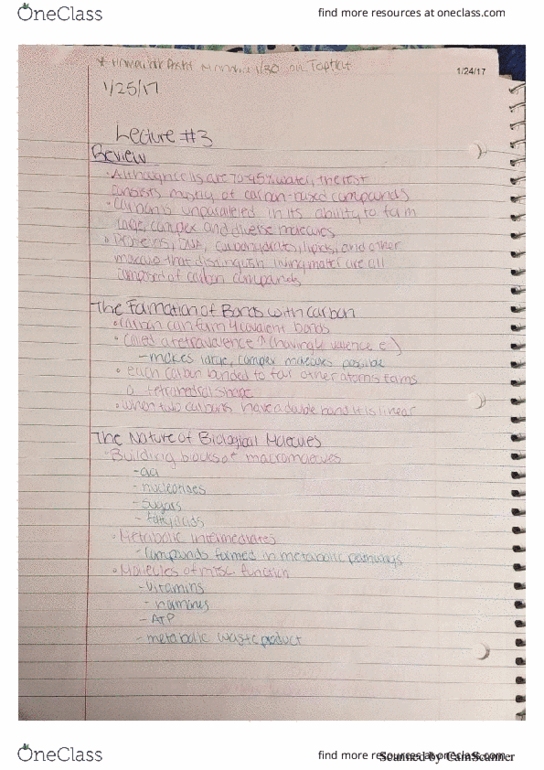 OneClass
find more resources at oneclass.com
1/24/17
1/25/17
Lecture #3
Review
consists mostly of carbon-based compounds
Carbon is unparalleled in its ability to form
large, complex and diverse molecules
Proteins, DNA, carbohydrates, lipids, and other
that distinguish living matter are all
composed of carbon compounds
The Formation of Bonds with Carbon
carbon can form 4 covalent bonds
(having 4 valence e-)
- makes large, complex molecules possible
each carbon bonded to four other atoms forms
a tetrahedral shape
when two carbons have a double bond it is linear
The Nature of Biological Molecules
Building blocks of macromolecules
- nucleotides
- sugars
- fatty acids
Metabolic intermediates
- compounds formed in metabolic pathways
Molecules of misc function
- vitamins
- ATP
- metabolic waste product
OneClass
find more resources at oneclass.com
Scanned by CamScanner